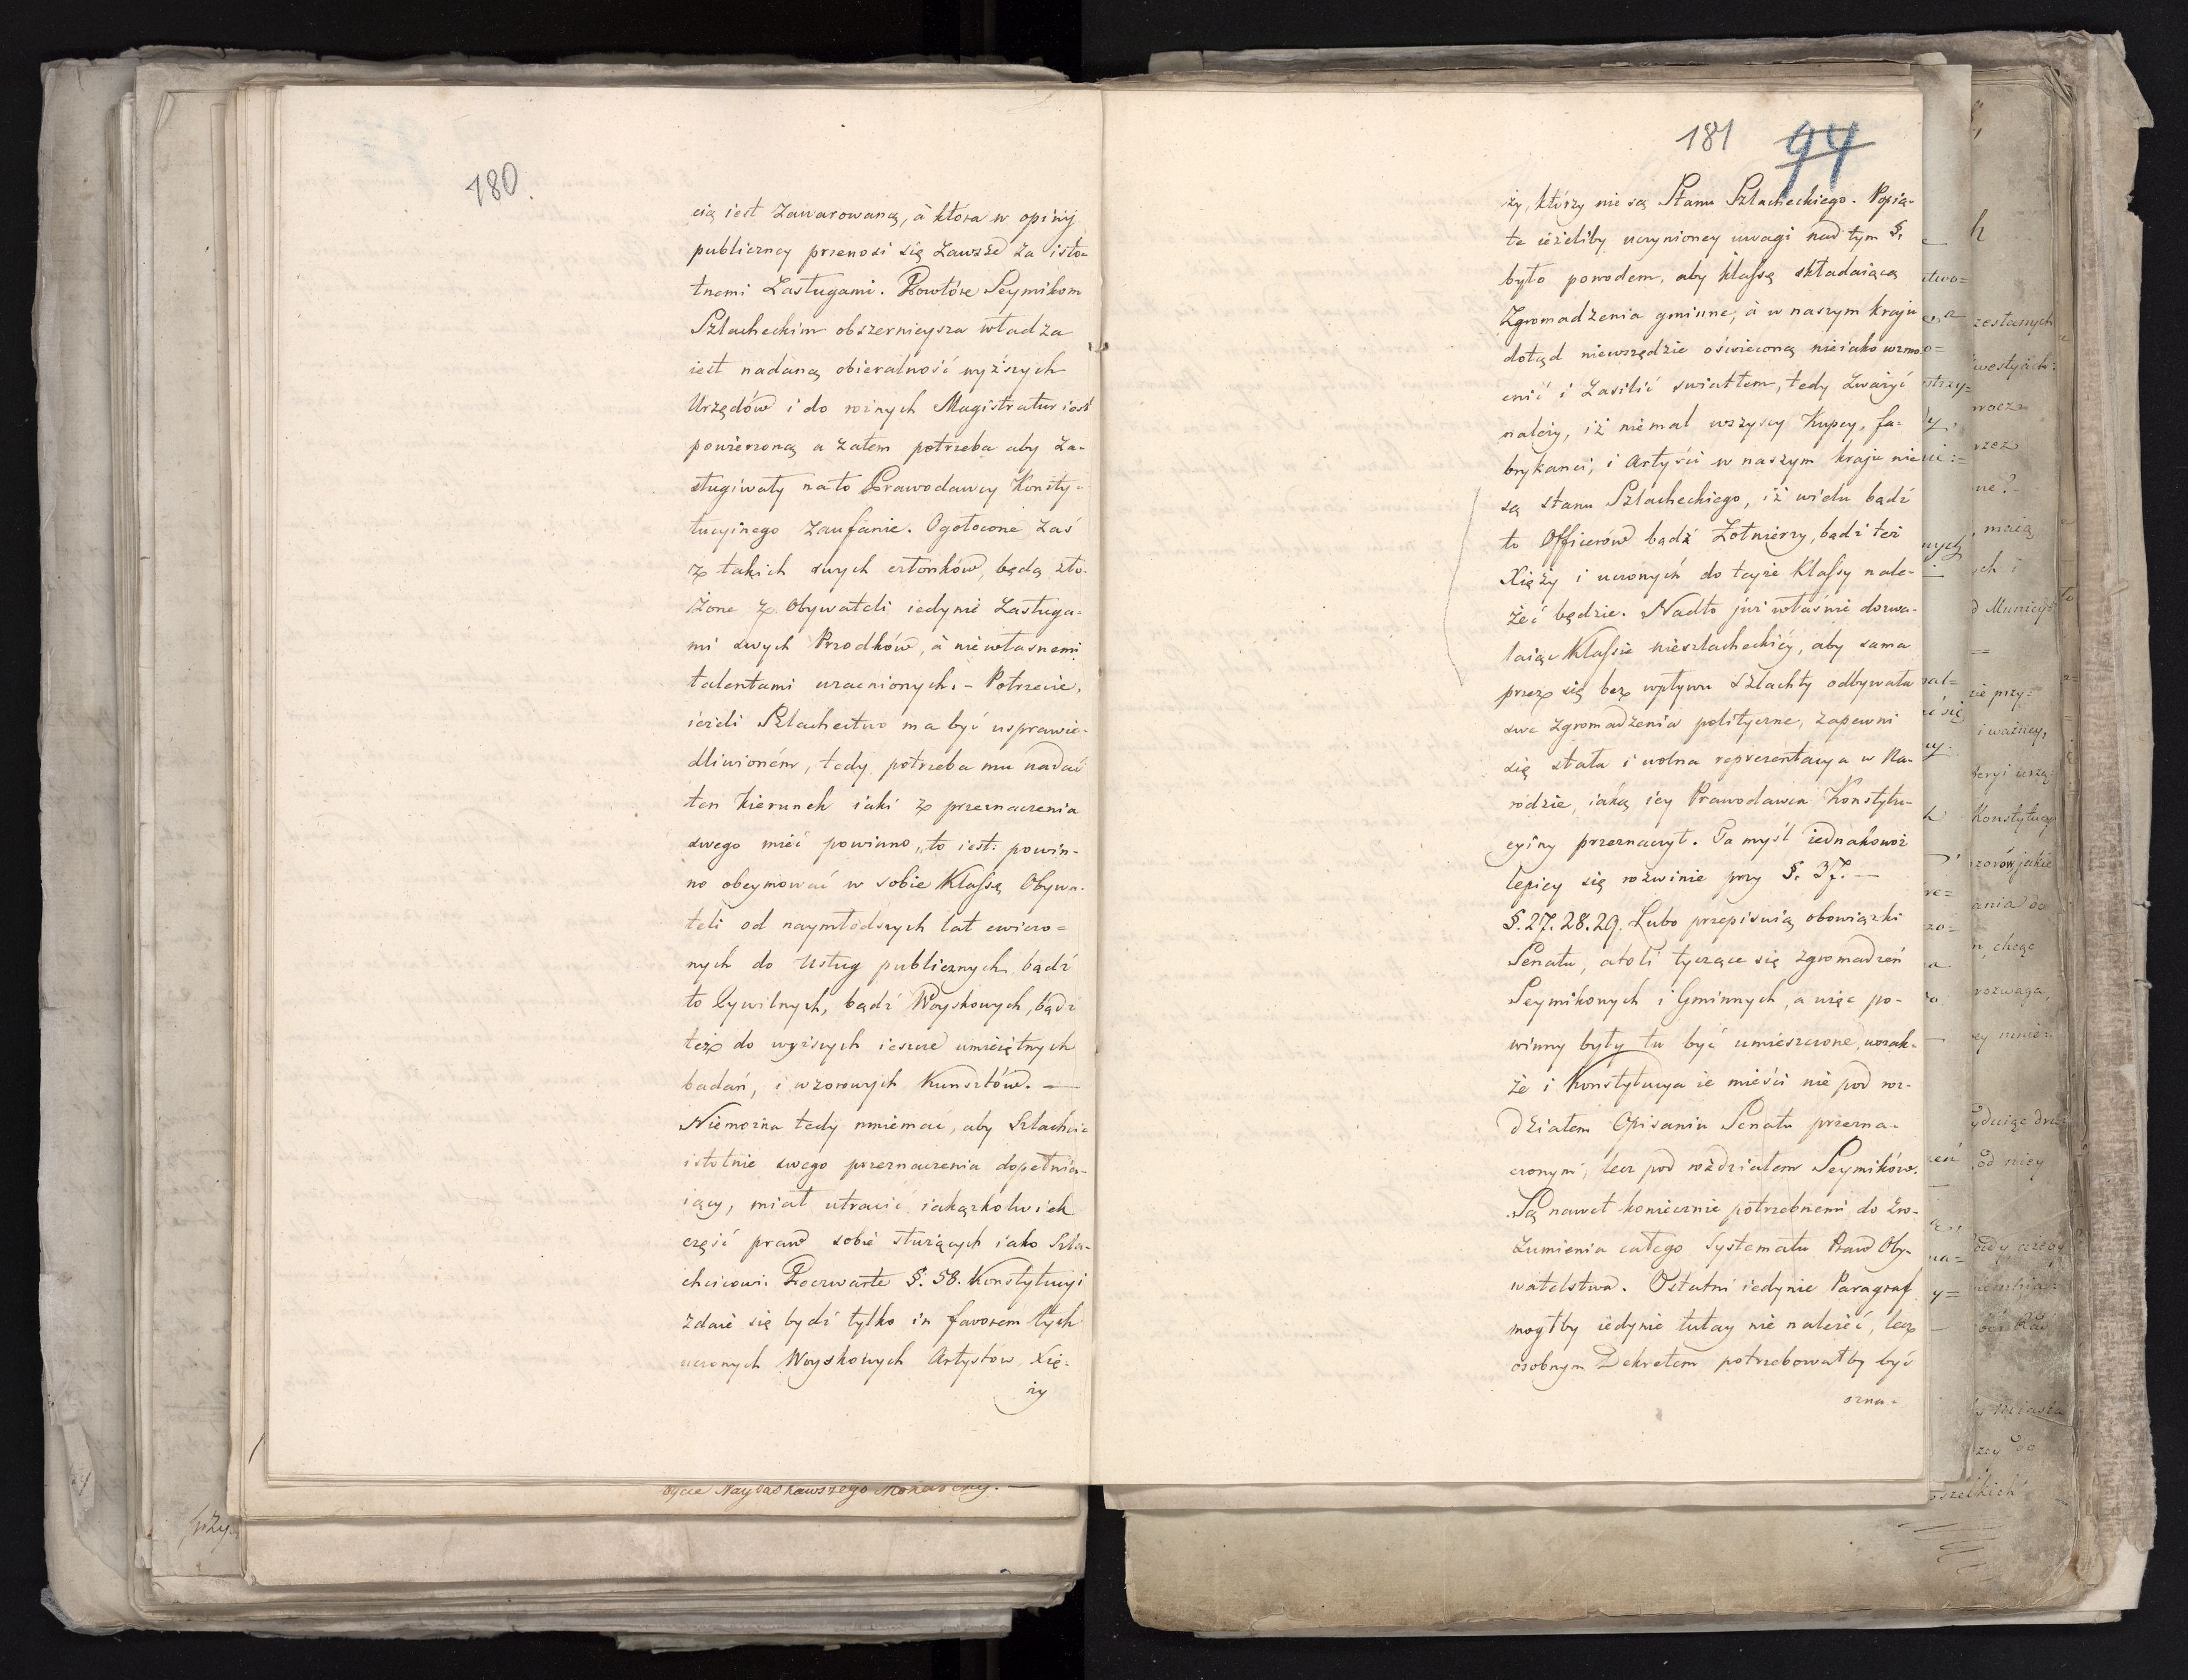 180.
cią iest zawarowaną, à która w opinij
publiczney przenosi się zawsze za isto-
tnemi zasługami. Powtóre Seymikom
Szlacheckim obszernieysza władza
iest nadaną obieralność wyższych
Urzędów i do rożnych Magistratur iest
powierzoną a zatem potrzeba aby za-
sługiwały na to Prawodawcy Konsty-
tucyinego zaufanie. Ogołocone zaś
z takich swych członków, będą zło-
żone z Obywateli iedynie zasługa-
mi swych Przodków, à nie własnemi
talentami uzacnionych. - Potrzecie,
ieżeli Szlachectwo ma być usprawie-
dliwioném, tedy potrzeba mu nadać
ten kierunek iaki z przeznaczenia
swego mieć powinno „to iest: powin-
no obeymować w sobie Klassę Obywa-
teli od naymłodszych lat ćwiczo=
nych do Usług publicznych, bądź
to Cywilnych, bądź Woyskowych, bądź
też do wyższych ieszcze umieiętnych
badań, i wzorowych Kunsztów. —
Niemożna tedy mniemać, aby Szlachcic
istotnie swego przeznaczenia dopełnia-
iący, miał utracić iakążkolwiek
część praw sobie służących iako Szla-
chcicowi. Poczwarte §. 58. Konstytucyi
zdaie się bydź tylko in favorem tych
uczonych Woyskowych Artystów, Xię-
ży
181 94
ży, którzy nie są Stanu Szlacheckiego. Popią-
te ieżeliby uczynioney uwagi nad tym §.
było powodem, aby klassę składaiącą
Zgromadzenia gminne, à w naszym kraju
dotąd niewszędzie oświeconą nieiako wzmo-
cnić i zasilić swiatłem, tedy zważyć
należy, iż niemal wszyscy Kupcy, fa-
brykanci, i Artyści w naszym kraju nie
są stanu Szlacheckiego, iż wielu bądź
to Officerów bądź Żołnierzy, bądź też
Xięży i uczonych do teyże Klassy nale-
żeć będzie. Nadto już właśnie dozwa-
laiąc Klassie nieszlacheckiéy, aby sama
przez się bez wpływu szlachty odbywała
swe zgromadzenia polityczne, zapewni
się stała i wolna reprezentacya w Na-
rodzie, iaką iey Prawodawca Konstytu-
cyiny przeznaczył. Ta myśl iednakowoż
lepiey się rozwinie przy §. 37. —
§. 27. 28. 29. Lubo przepisuią obowiązki
Senatu, atoli tyczące się zgromadzeń
Seymikowych i Gminnych, a więc po-
winny były tu być umieszczone, wszak-
że i Konstytucya ie mieści nie pod roz-
działem Opisaniu Senatu przezna-
czonym, lecz pod rozdziałem Seymików.
Są nawet koniecznie potrzebnemi do zro-
zumienia całego Systematu Praw Oby-
watelstwa. Ostatni iedynie Paragraf
mogłby iedynie tutay nie należeć, lecz
osobnym Dekretem potrzebowałby być
ozna-